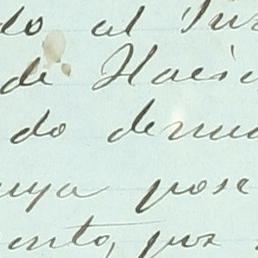 do al Juz
de Hacien
do denun
uya pose
ento, por